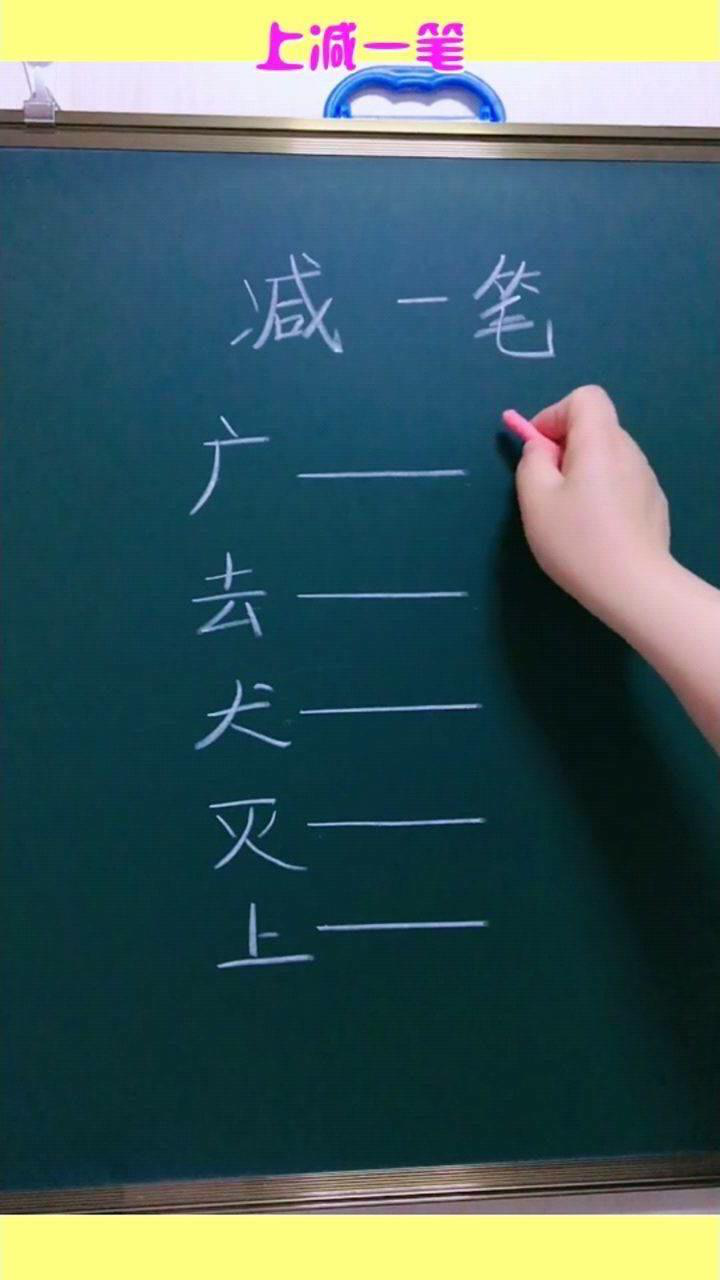 上减一笔
减一笔
广
去
犬
灭
上